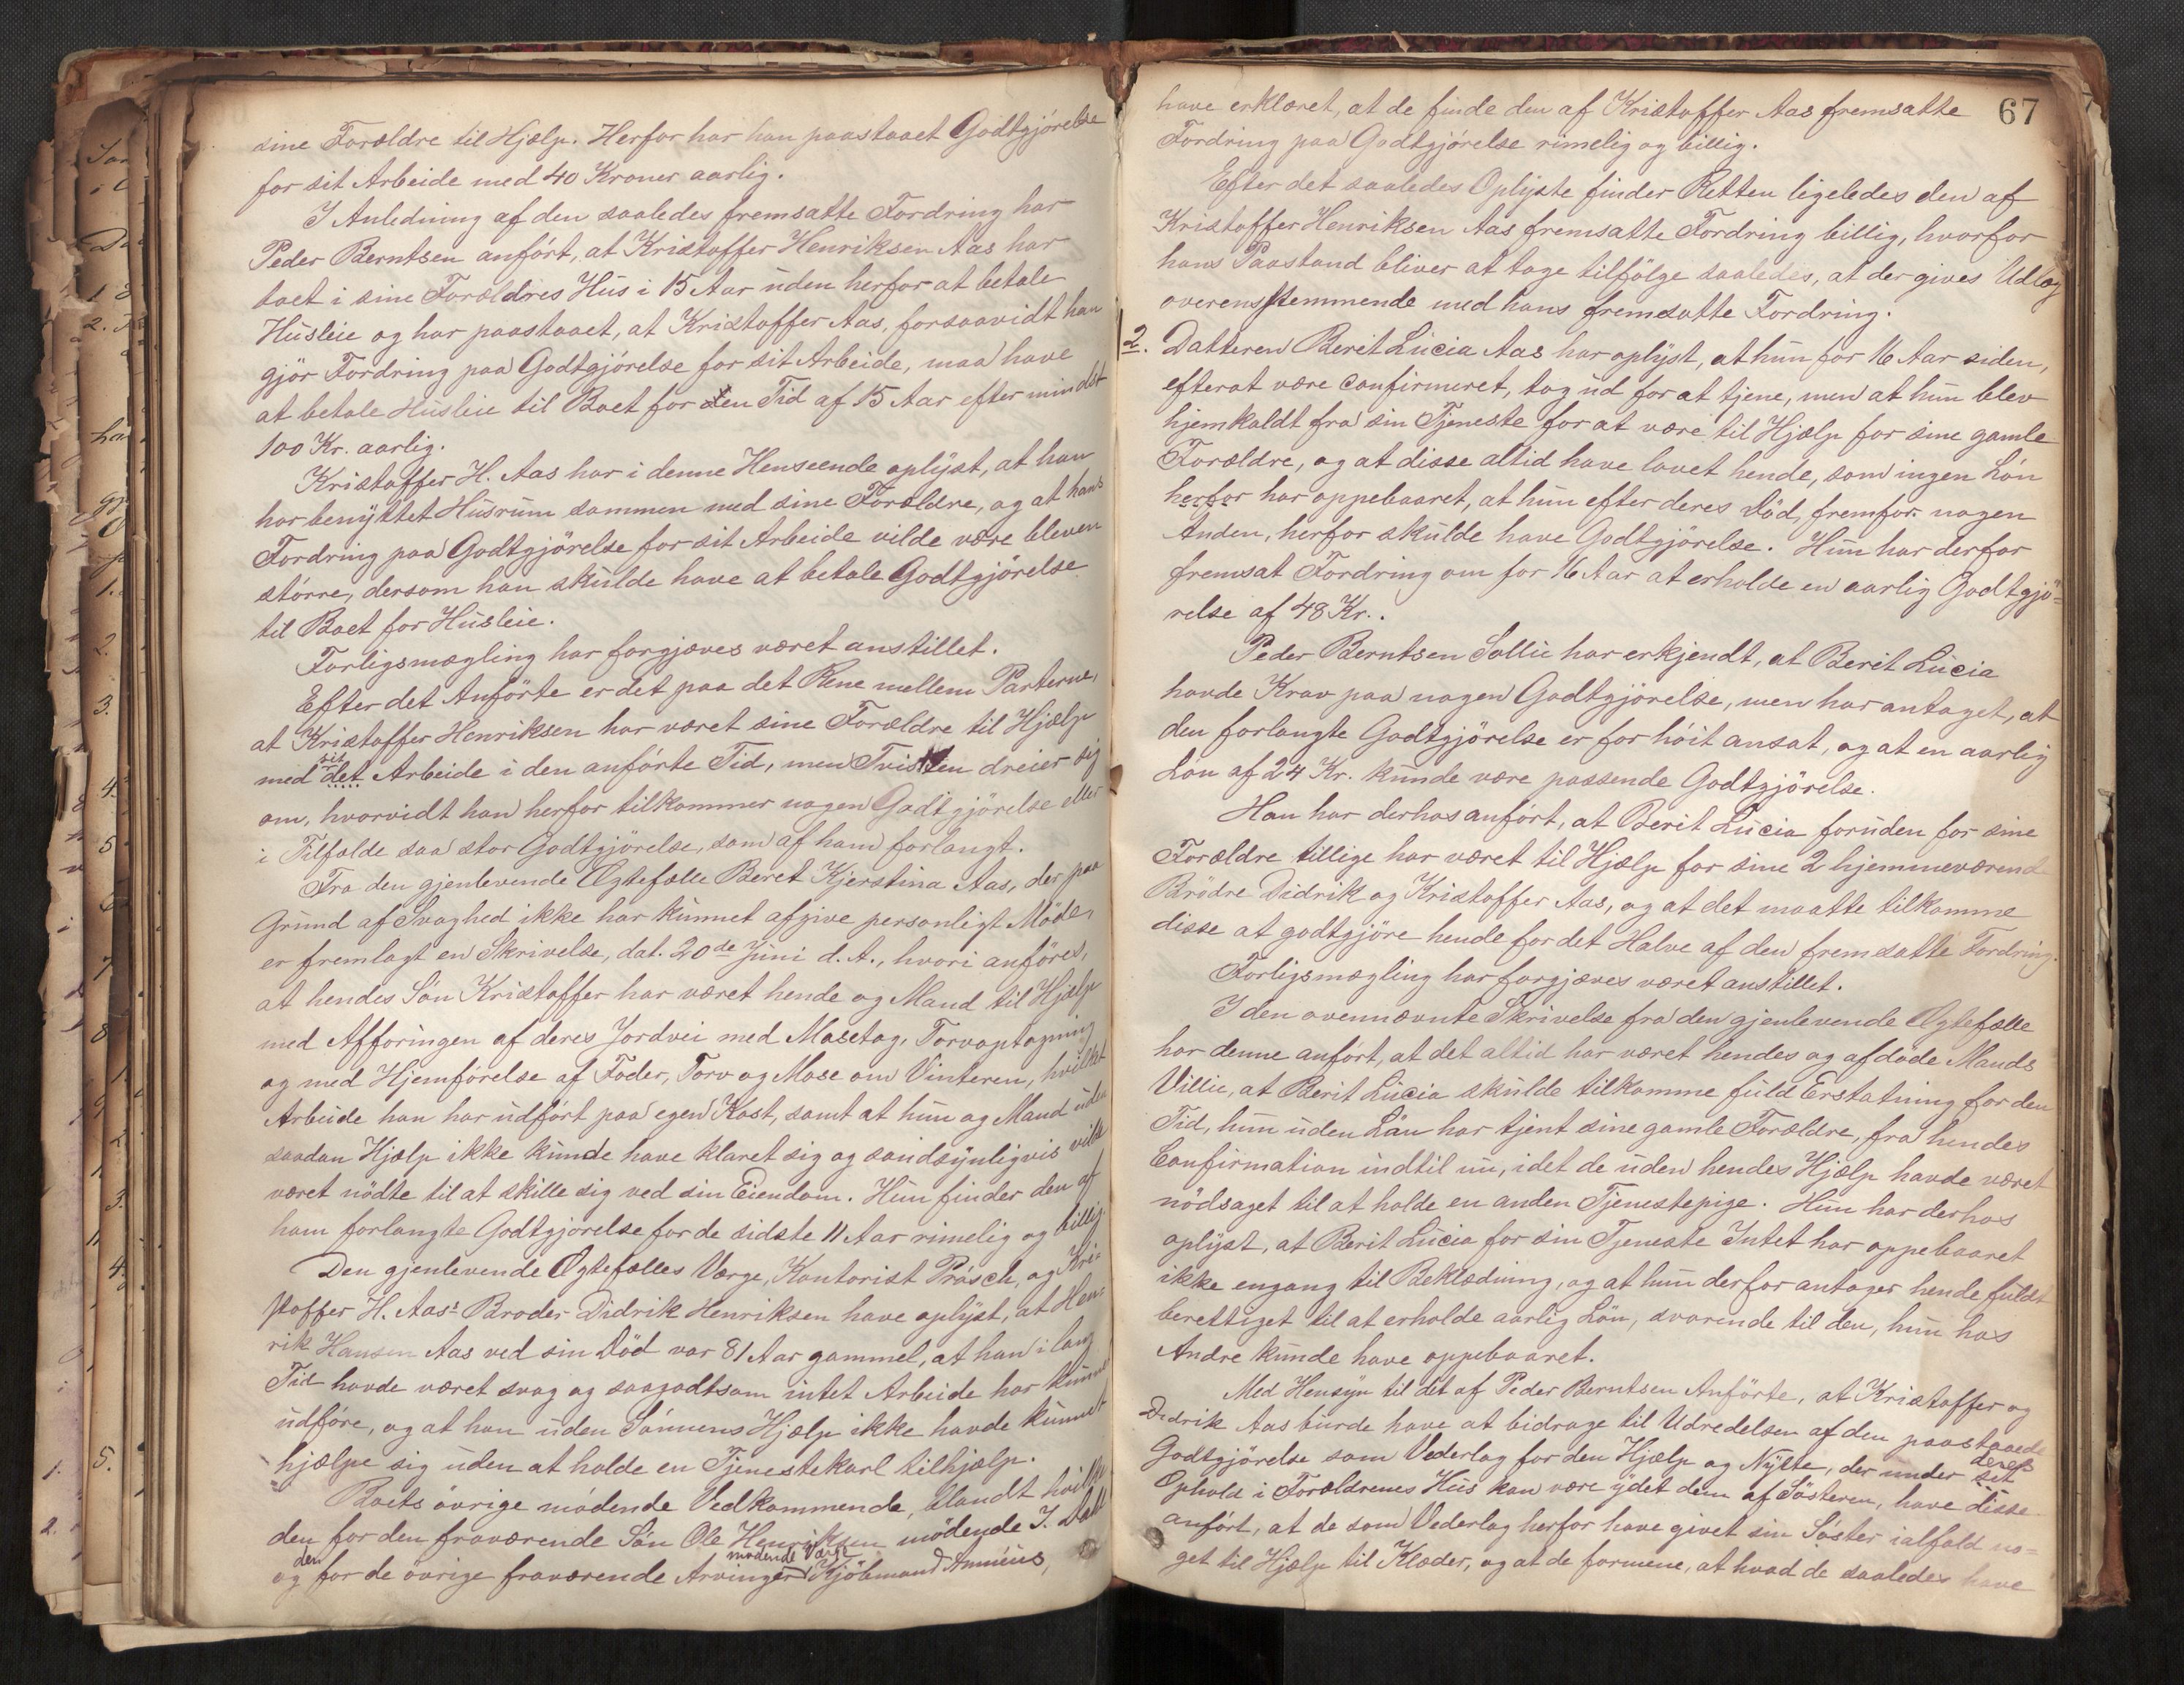 sine Forældre til Hjælp. Herfor har han paastaaet Godtgjörelse
for sit Arbeide med 40 Kroner aarlig.
I Anledning af den saaledes fremsatte Fordring har
Peder Berntsen anfört, at Kristoffer Henriksen Aas har
boet i sine Forældres Hus i 15 Aar uden herfor at betale
Husleie og har paastaaet, at Kristoffer Aas, forsaavidt han
gjör Fordring paa Godtgjörelse for sit Arbeide, maa have
at betale Husleie til Boet for den Tid af 15 Aar efter mindst
100 Kr. aarlig.
Kristoffer H. Aas har i denne Henseende oplyst, at han
har benyttet Husrum sammen med sine Forældre, og at hans
Fordring paa Godtgjörelse for sit Arbeide vilde være bleven
större, dersom han skulde have at betale Godtgjörelse
til Boet for Husleie.
Forligsmægling har forgjæves været anstillet.
Efter det Anförte er det paa det Rene mellem Parterne,
at Kristoffer Henriksen har været sine Forældre til Hjælp
med sit det Arbeide i den anförte Tid, men Tvisten dreier sig
om, hvorvidt han herfor tilkommer nogen Godtgjörelse eller
i Tilfælde saa stor Godtgjörelse, som af ham forlangt.
Fra den gjenlevende Ægtefælle Beret Kjerstina Aas, der paa
Grund af Svaghed ikke har kunnet afgive personligt Möde,
er fremlagt en Skrivelse, dat. 20de Juni d. A., hvori anföres,
at hendes Sön Kristoffer har været hende og Mand til Hjælp
med Afforingen af deres Jordvei med Masetag, Torvoptagning
og med Hjemförelse af Foder, Torv og Mose om Vinteren, hvilket
Arbeide han har udfört paa egen Kost, samt at hun og Mand uden
saadan Hjælp ikke kunde have klaret sig og sandsynligvis vilde
været nödte til at skille sig ved sin Eiendom. Hun finder den af
ham forlangte Godtgjörelse for de sidste 11 Aar rimelig og billig.
Den gjenlevende Ægtefælles Værge, Kontorist Prösch, og Kri-
stoffer H. Aas's Broder Didrik Henriksen have oplyst, at Hen-
rik Hansen Aas ved sin Död var 81 Aar gammel, at han i lang
Tid havde været svag og saagodtsom intet Arbeide har kunnet
udföre, og at han uden Sönnens Hjælp ikke havde kunnet
hjælpe sig uden at holde en Tjenestekarl tilhjælp.
Boets övrige mödende Vedkommende, blandt hvilke
den for den fraværende Sön Ole Henriksen mödende J.
og den for de övrige fraværende Arvinger mödende Værge Kjöbmand Annæus,
67
have erklæret, at de finde den af Kristoffer Aas fremsatte
Fordring paa Godtgjörelse rimelig og billig.
Efter det saaledes Oplyste finder Retten ligeledes den af
Kristoffer Henriksen Aas fremsatte Fordring billig, hvorfor
hans Paastand bliver at tage tilfölge saaledes, at der gives Udlæg
overensstemmende med hans fremsatte Fordring.
2. Datteren Berit Lucia Aas har oplyst, at hun for 16 Aar siden,
efterat være confirmeret, tog ud for at tjene, men at hun blev
hjemkaldt fra sin Tjeneste for at være til Hjælp for sine gamle
Forældre, og at disse altid have lovet hende, som ingen Lön
herfor har oppebaaret, at hun efter deres Död, fremfor nogen
Anden, herfor skulde have Godtgjörelse. Hun har derfor
fremsat Fordring om for 16 Aar at erholde en aarlig Godtgjö-
relse af 48 Kr..
Peder Berntsen Sollie har erkjendt, at Berit Lucia
havde Krav paa nogen Godtgjörelse, men har antaget, at
den forlangte Godtgjörelse er for höit ansat, og at en aarlig
Lön af 24 Kr. kunde være passende Godtgjörelse.
Han har derhos anfört, at Berit Lucia foruden for sine
Forældre tillige har været til Hjælp for sine 2 hjemmeværende
Brödre Didrik og Kristoffer Aas, og at det maatte tilkomme
disse at godtgjöre hende for det Halve af den fremsatte Fordring.
Forligsmægling har forgjæves været anstillet.
I den ovennævnte Skrivelse fra den gjenlevende Ægtefælle
har denne anfört, at det altid har været hendes og afdöde Mands
Villie, at Berit Lucia skulde tilkomme fuld Erstatning for den
Tid, hun uden Lön har tjent sine gamle Forældre, fra hendes
Confirmation indtil nu, idet de uden hendes Hjælp havde været
nödsaget til at holde en anden Tjenestepige. Hun har derhos
oplyst, at Berit Lucia for sin Tjeneste Intet har oppebaaret
ikke engang til Beklædning, og at hun derfor antager hende fuldt
berettiget til at erholde aarlig Lön, svarende til den, hun hos
Andre kunde have oppebaaret.
Med Hensyn til det af Peder Berntsen Anförte, at Kristoffer og
Didrik Aas burde have at bidrage til Udredelsen af den paastaaede
Godtgjörelse som Vederlag for den Hjælp og Nytte, der under deres sit
Ophold i Forældrenes Hus kan være ydet dem af Sösteren, have disse
anfört, at de som Vederlag herfor have givet sin Söster ialfald no-
get til Hjælp til Klæder, og at de formene, at hvad de saaledes have